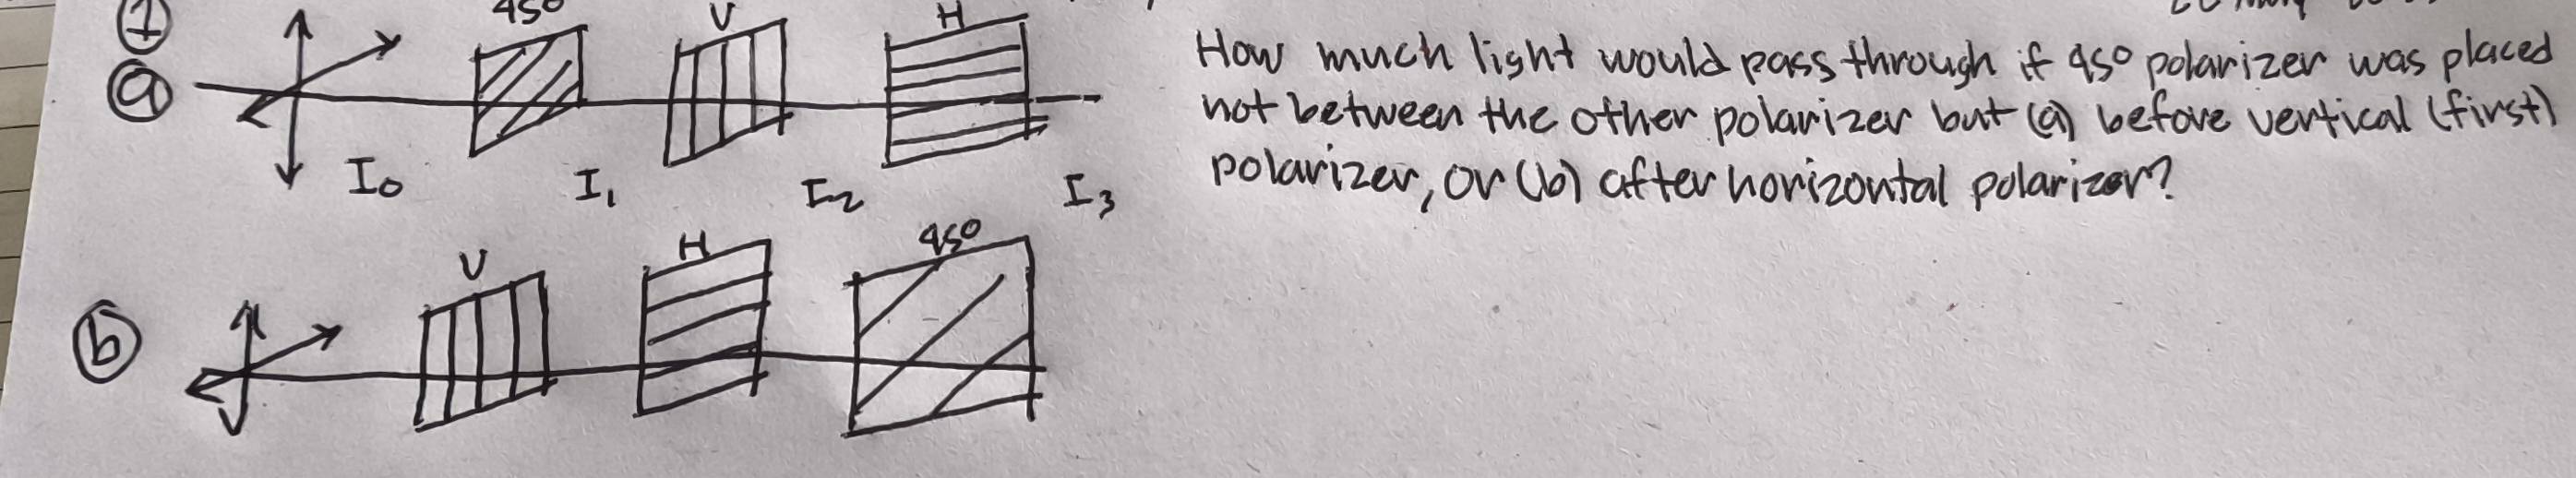 ①
45°
V
H
ⓐ
I₀
I₁
I₂
I₃
How much light would pass through if 45° polarizer was placed
not between the other polarizer but (a) before vertical (first)
polarizer, or (b) after horizontal polarizer?
ⓑ
V
H
45°